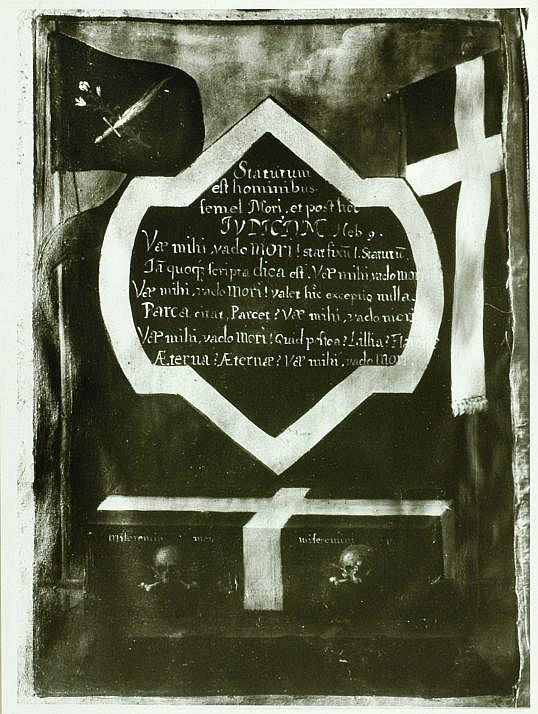 Statutum
est hominibus
semel Mori, et post hoc
IVDICIVM. Heb. 9.
Væ mihi, vado MORI! stat fixũ l. Statutũ.
Iã quoq; scripta dica est. Væ mihi, vado mori
Væ mihi, vado mori! valet hic exceptio nulla.
Parca citat, Parcet? Væ mihi, vado mori
Væ mihi, vado mori! Quid Lilia?
Æterna? Æternæ? Væ mihi, vado mori.
miseremini mei
miseremini